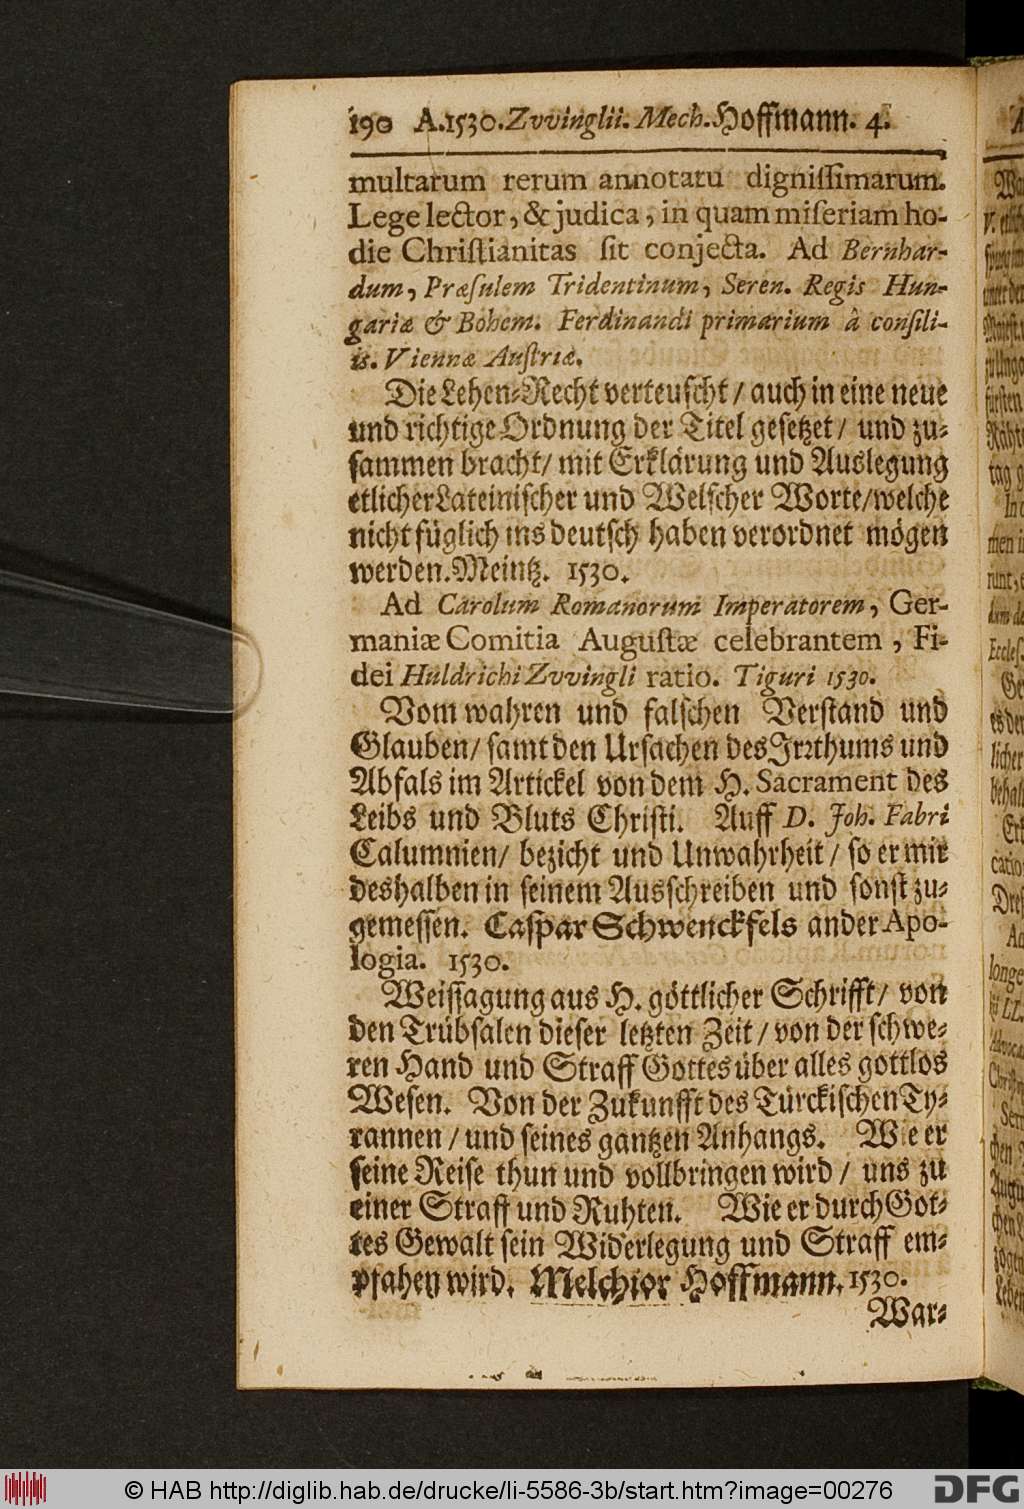 190 A.1530. Zvvinglii. Mech. Hoffmann. 4.
multarum rerum annotatu dignissimarum.
Lege lector, & judica, in quam miseriam ho-
die Christianitas sit conjecta. Ad Bernhar-
dum, Præsulem Tridentinum, Seren. Regis Hun-
gariæ & Bohem. Ferdinandi primarium â consili-
is. Viennæ Austriæ.
Die Lehen-Recht verteuscht / auch in eine neue
und richtige Ordnung der Titel gesetzet / und zu-
sammen bracht / mit Erklärung und Auslegung
etlicher Lateinischer und Welscher Worte / welche
nicht füglich ins deutsch haben verordnet mögen
werden. Meintz. 1530.
Ad Carolum Romanorum Imperatorem, Ger-
maniæ Comitia Augustæ celebrantem, Fi-
dei Huldrichi Zvvingli ratio. Tiguri 1530.
Vom wahren und falschen Verstand und
Glauben / samt den Ursachen des Irrthums und
Abfals im Artickel von dem H. Sacrament des
Leibs und Bluts Christi. Auff D. Joh. Fabri
Calumnien / bezicht und Unwahrheit / so er mir
deshalben in seinem Ausschreiben und sonst zu-
gemessen. Caspar Schwenckfels ander Apo-
logia. 1530.
Weissagung aus H. göttlicher Schrifft / von
den Trübsalen dieser letzten Zeit / von der schwe-
ren Hand und Straff Gottes über alles gottlos
Wesen. Von der Zukunfft des Türckischen Ty-
rannen / und seines gantzen Anhangs. Wie er
seine Reise thun und vollbringen wird / uns zu
einer Straff und Ruhten. Wie er durch Got-
tes Gewalt sein Widerlegung und Straff em-
pfahen wird. Melchior Hoffmann. 1530.
War-
© HAB http://diglib.hab.de/drucke/li-5586-3b/start.htm?image=00276
DFG